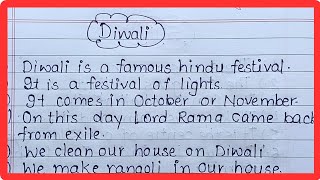 Diwali
Diwali is a famous hindu festival.
It is a festival of lights.
It comes in October or November
On this day Lord Rama came back
from exile.
We clean our house on Diwali
We make rangoli in our house.